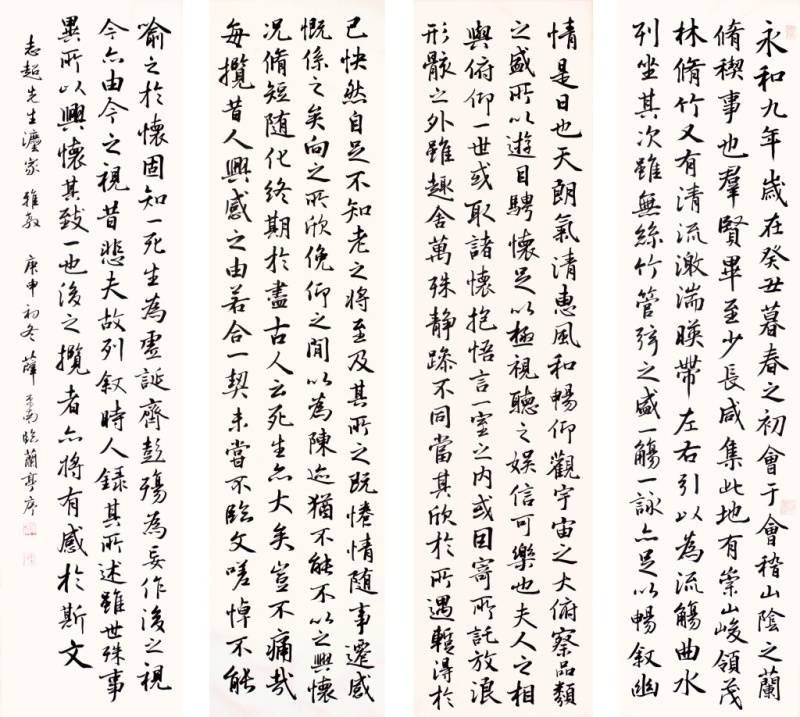 永和九年歲在癸丑暮春之初會于會稽山陰之蘭
脩禊事也羣賢畢至少長咸集此地有崇山峻領茂
林脩竹又有清流激湍暎帶左右引以為流觴曲水
列坐其次雖無絲竹管弦之盛一觴一詠亦足以暢敘幽
情是日也天朗氣清惠風和暢仰觀宇宙之大俯察品類
之盛所以遊目騁懷足以極視聽之娛信可樂也夫人之相
與俯仰一世或取諸懷抱悟言一室之內或因寄所託放浪
形骸之外雖趣舍萬殊靜躁不同當其欣於所遇蹔得於
己快然自足不知老之將至及其所之既惓情隨事遷感
慨係之矣向之所欣俛仰之閒以為陳迹猶不能不以之興懷
況脩短隨化終期於盡古人云死生亦大矣豈不痛哉
每攬昔人興感之由若合一契未嘗不臨文嗟悼不能
喻之於懷固知一死生為虛誕齊彭殤為妄作後之視
今亦由今之視昔悲夫故列敘時人錄其所述雖世殊事
異所以興懷其致一也後之攬者亦將有感於斯文
志超先生灋家雅教 庚申初冬薛平南臨蘭亭序